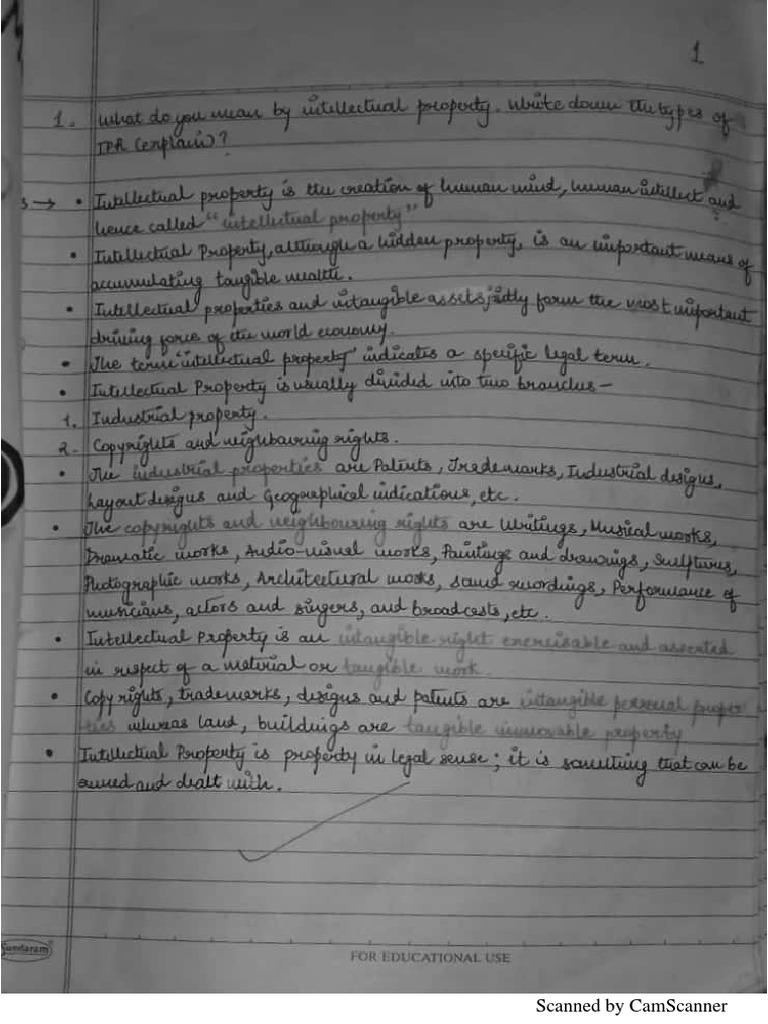 1
1. What do you mean by intellectual property. Write down the types of
IPR (explain)?
→ • Intellectual property is the creation of human mind, human intellect and
hence called "intellectual property"
• Intellectual Property, although a hidden property, is an important means of
accumulating tangible wealth.
• Intellectual properties and intangible assets, jointly form the most important
driving force of the world economy.
• The term 'intellectual property' indicates a specific legal term.
• Intellectual Property is usually divided into two branches -
1. Industrial property.
2. Copyrights and neighbouring rights.
• The industrial properties are Patents, Trademarks, Industrial designs,
Layout designs and Geographical indications, etc.
• The copyrights and neighbouring rights are Writings, Musical works,
Dramatic works, Audio-visual works, Paintings and drawings, Sculptures,
Photographic works, Architectural works, sound recordings, Performance of
musicians, actors and singers, and broadcasts, etc.
• Intellectual Property is an intangible right exercisable and asserted
in respect of a material or tangible work.
• Copy rights, trademarks, designs and patents are intangible personal proper
ties whereas land, buildings are tangible immovable property
• Intellectual Property is property in legal sense; it is something that can be
owned and dealt with.
Sundaram
FOR EDUCATIONAL USE
Scanned by CamScanner